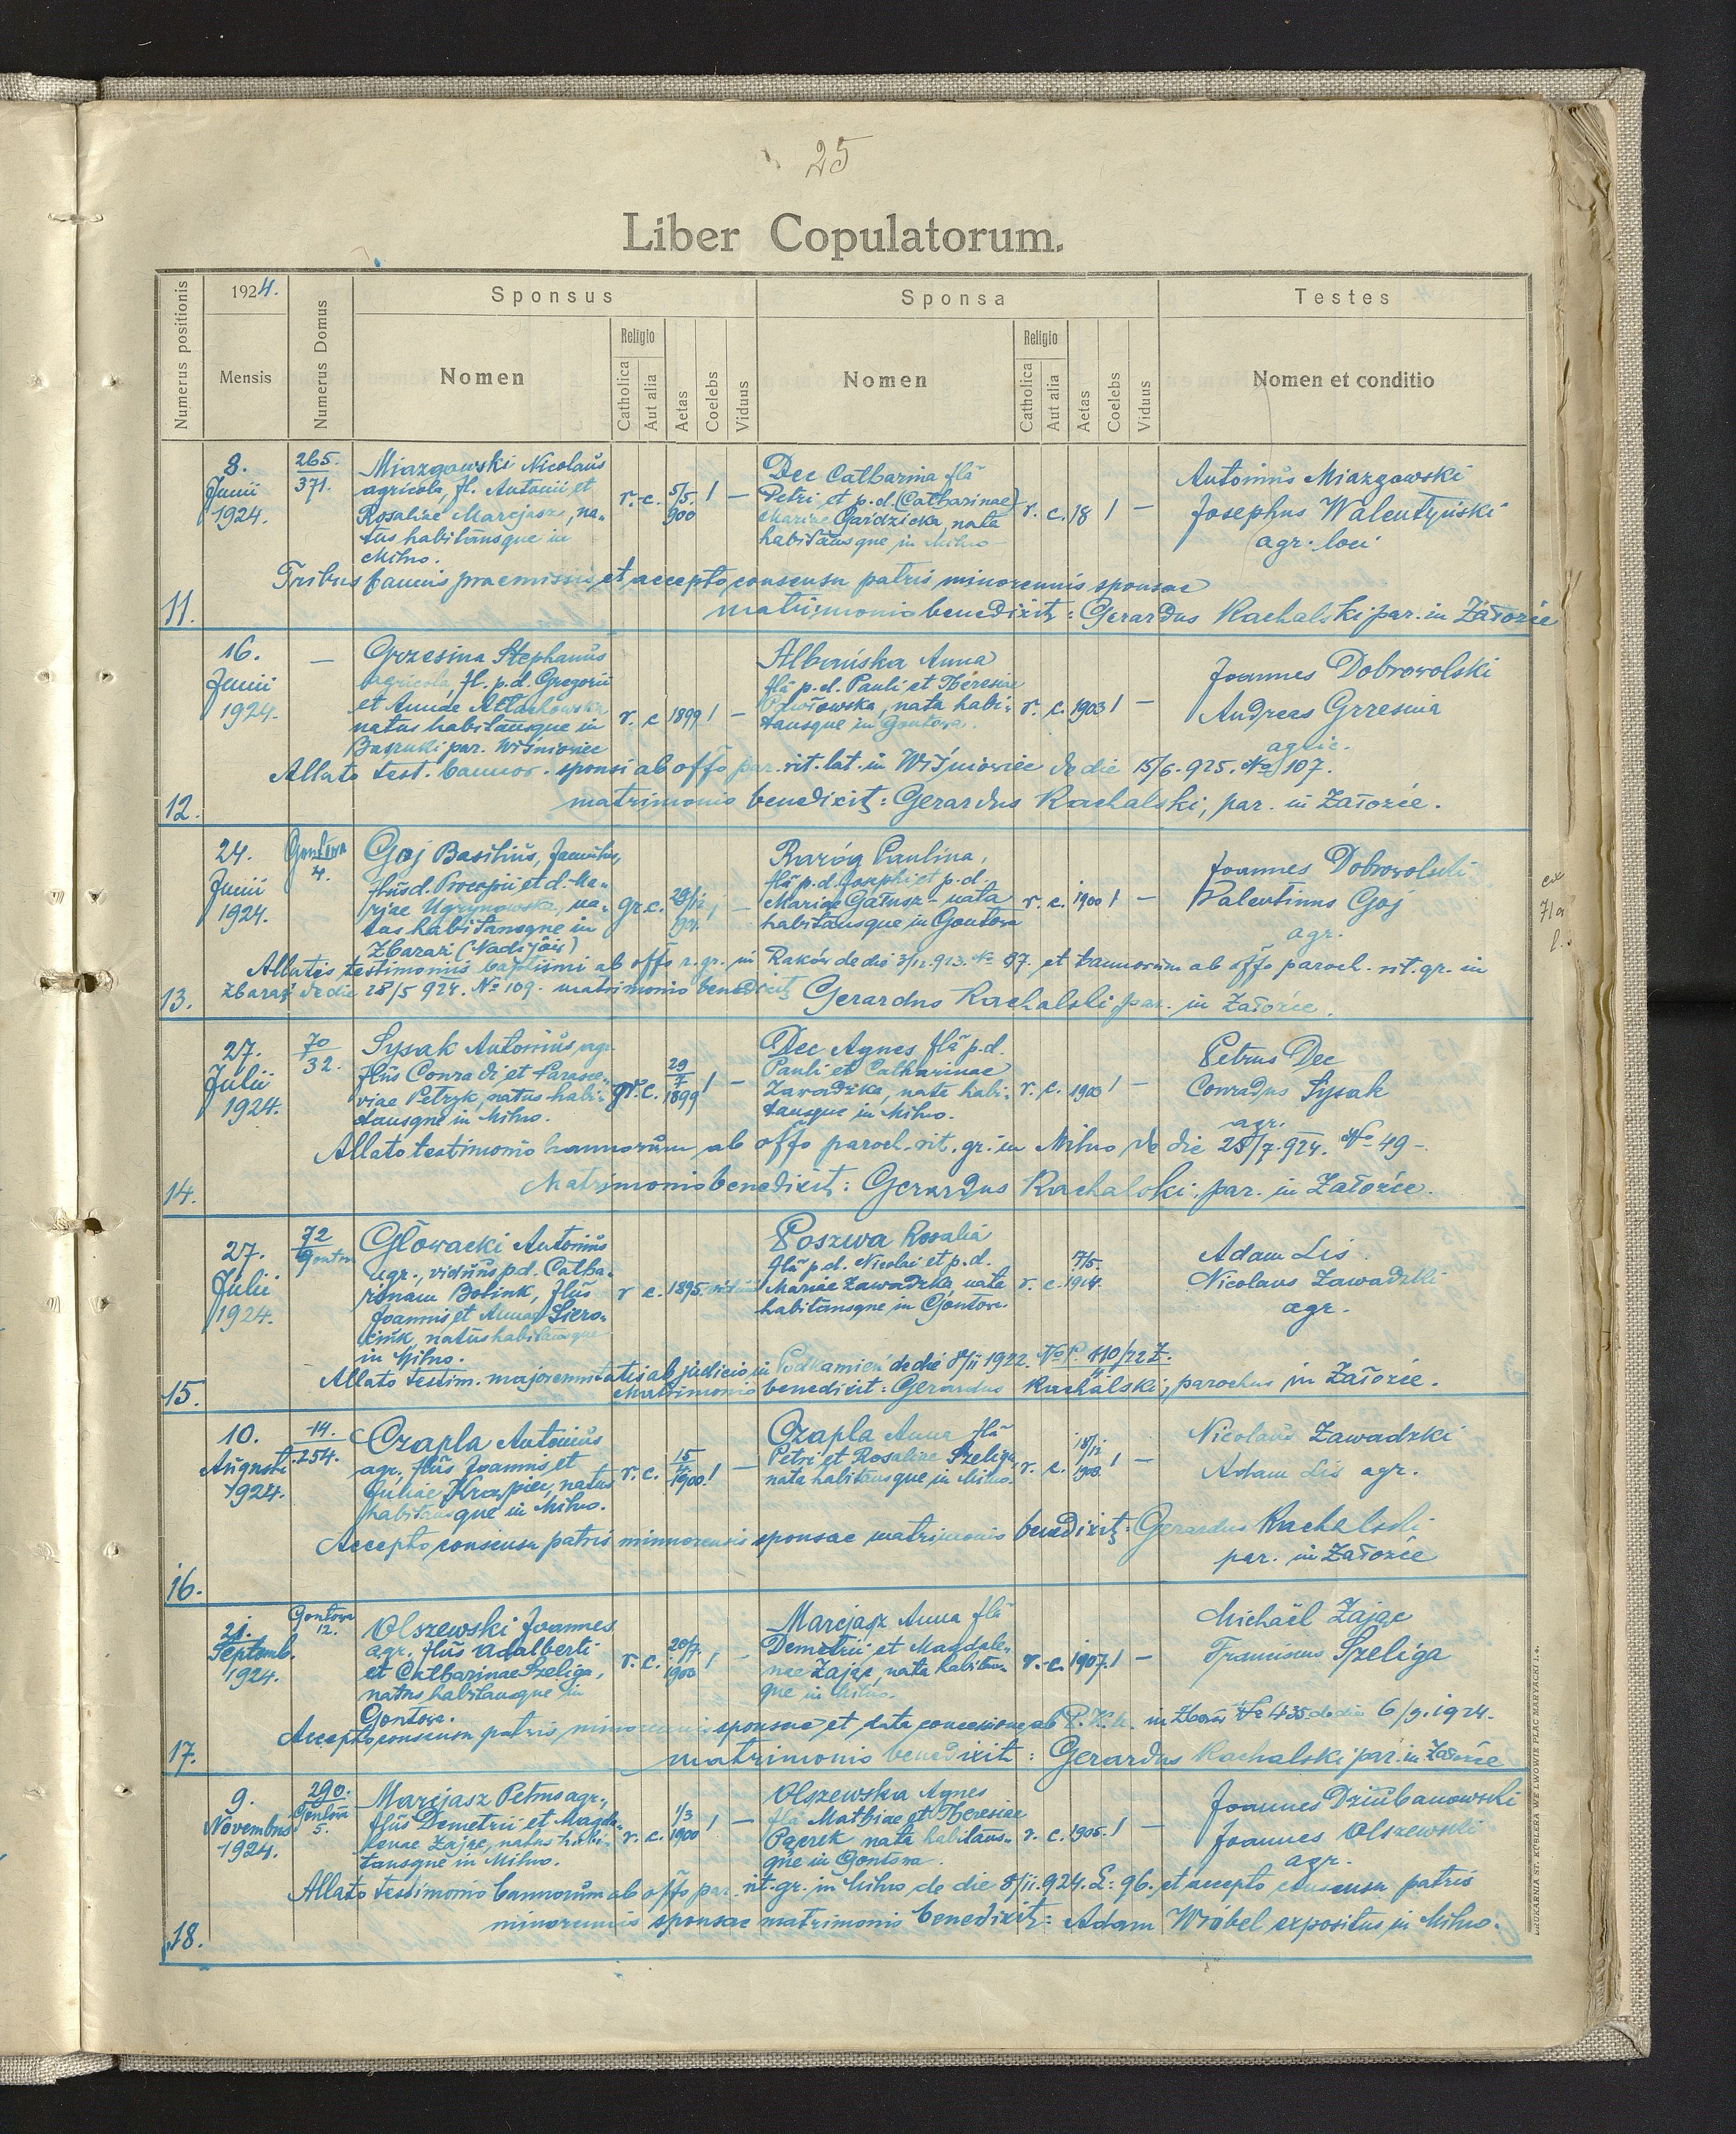 25
Liber Copulatorum.
Numerus positionis
1924.
Mensis
Numerus Domus
Sponsus
Nomen
Religio
Catholica
Aut alia
Aetas
Coelebs
Viduus
Sponsa
Nomen
Religio
Catholica
Aut alia
Aetas
Coelebs
Viduus
Testes
Nomen et conditio
11.
8.
Junii
1924.
265.
371.
Miazgowski Nicolaus
agricola, fl. Antonii et
Rosaliae Marcjasz, na-
tus habitansque in
Milno.
r.-c.
5/5
900
1 —
Dec Catharina fla
Petri et p.d. (Catharinae)
Mariae Gardzicka, nata
habitansque in Milno
r. c. 18 1 —
Antonius Miazgowski
Josephus Walentyński
agr. loci
Tribus bannis praemissis et accepto consensu patris minorennis sponsae
matrimonio benedixit: Gerardus Rachalski par. in Załoźce
12.
16.
Junii
1924.
—
Grzesina Stephanus
agricola, fl. p.d. Gregorii
et Annae
natus habitansque in
par. Wiśniowiec
r. c 1899 1 —
Albańska Anna
fla p.d. Pauli et Theresiae
nata habi-
tansque in Gontowa.
r. c. 1903 1 —
Joannes Dobrowolski
Andreas Grzesina
agric.
Allato test. bannor. sponsi ab offo par. rit. lat. in Wiśniowiec de die 15/6. 925. No 107.
matrimonio benedixit: Gerardus Rachalski, par. in Załoźce.
13.
24.
Junii
1924.
Gontowa
4.
Goj Basilius, famulus,
flius d. Procopii et d. Ma-
riae Ugrynowska, na-
tus habitansque in
Zbaraż (Nadijów)
gr. c.
1 —
Raróg Paulina,
fla p.d. Josephi et p.d.
Mariae Gałusz - nata
habitansque in Gontowa
r. c. 1900 1 —
Joannes Dobrowolski
Valentinus Goj
agr.
Allatis testimoniis baptismi ab offo r. gr. in Raków de die 3/12. 913. No 37 et bannorum ab offo paroch. rit. gr. in
Zbaraż de die 28/5 924. No 109. matrimonio benedixit Gerardus Rachalski par. in Załoźce.
14.
27.
Julii
1924.
70
32.
Sysak Antonius, agr.
flius Conradi et Parasce-
viae Petryk, natus habi-
tansque in Milno.
gr. c.
29
7
1899
1 —
Dec Agnes fla p.d.
Pauli et Catharinae
Zawadzka, nata habi-
tansque in Milno.
r. c. 1903 1 —
Petrus Dec
Conradus Sysak
agr.
Allato testimonio bannorum ab offo paroch. rit. gr. in Milno de die 25/7. 924. No 49 -
Matrimonio benedixit: Gerardus Rachalski, par. in Załoźce.
15.
27.
Julii
1924.
72
Gontow
Głowacki Antonius
agr., viduus p.d. Catha-
rinam Bolink, flius
Joannis et Annae Siero-
natus habitansque
in Milno.
r c. 1895. viduus
Poszwa Rosalia
fla p.d. Nicolai et p.d.
Mariae Zawadzka nata
habitansque in Gontowa
r. c.
7/5.
1904.
Adam Lis
Nicolaus Zawadzki
agr.
Allato testim. majorennitatis ab judicio in Podkamień de die 8/11 1922. No P. 110/22 Z.
Matrimonio benedixit: Gerardus Rachalski, parochus in Załoźce.
16.
10.
Augusti
1924.
14.
254.
Czapla Antonius
agr. flius Joannis et
Juliae Krąpiec, natus
habitansque in Milno.
r. c.
1900.
1 —
Czapla Anna fla
Petri et Rosaliae Szeliga,
nata habitansque in Milno.
r. c.
18/12
1903.
1 —
Nicolaus Zawadzki
Adam Lis agr.
Accepto consensu patris minorennis sponsae matrimonio benedixit: Gerardus Rachalski
par. in Załoźce
17.
21.
Septemb.
1924.
Gontowa
12.
Olszewski Joannes
agr. flius Adalberti
et Catharinae Szeliga,
natus habitansque in
Gontowa.
r. c.
20/7.
1900
1 -
Marcjasz Anna fla
Demetrii et Magdale-
nae Zając, nata habitans-
que in Milno.
r.-c. 1907. 1 —
Michaël Zając
Franciscus Szeliga
Accepto consensu patris minorennis sponsae et data concessione ab P. K. U. in Zborów No 435 de die 6/9. 1924.
matrimonio benedixit: Gerardus Rachalski par. in Załoźce
18.
9.
Novembris
1924.
290.
Gontowa
5.
Marcjasz Petrus agr.,
flius Demetrii et Magda-
lenae Zając, natus habi-
tansque in Milno.
r. c.
1/3
1900
1 —
Olszewska Agnes
fla Mathiae et Theresiae
nata habitans-
que in Gontowa.
r. c. 1905. 1 —
Joannes Dziubanowski
Joannes Olszewski
agr.
Allato testimonio bannorum ab offo par. rit. gr. in Milno de die 8/11. 924. L: 96. et accepto consensu patris
minorennis sponsae matrimonio benedixit: Adam Wróbel expositus in Milno.
DRUKARNIA ST. KÜBLERA WE LWOWIE PLAC MARYACKI L 4.